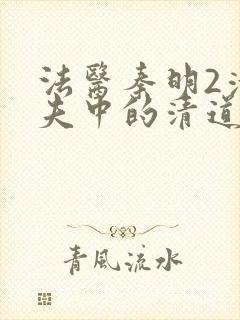 法醫秦明2清
夫中的清道
青風流水